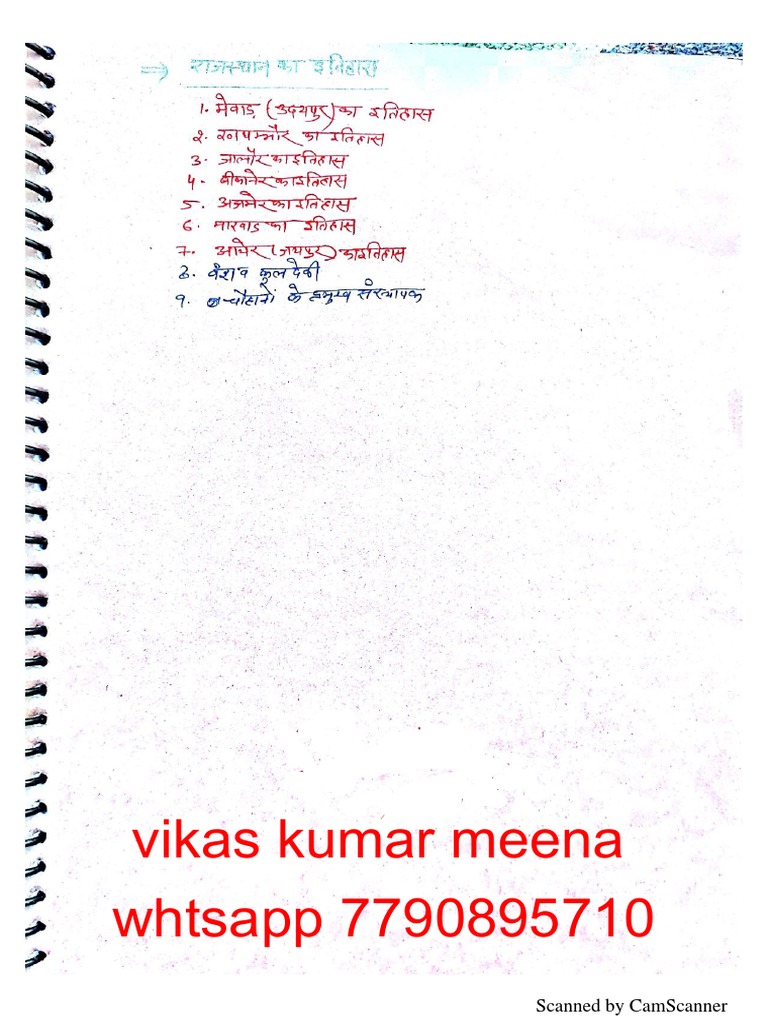 ⇒ राजस्थान का इतिहास
1. मेवाड़ (उदयपुर) का इतिहास
2. रणथम्भौर का इतिहास
3. जालौर का इतिहास
4. बीकानेर का इतिहास
5. अजमेर का इतिहास
6. मारवाड़ का इतिहास
7. आमेर (जयपुर) का इतिहास
8. वंश व कुल देवी
9. चौहानों के प्रमुख संस्थापक
vikas kumar meena
whtsapp 7790895710
Scanned by CamScanner